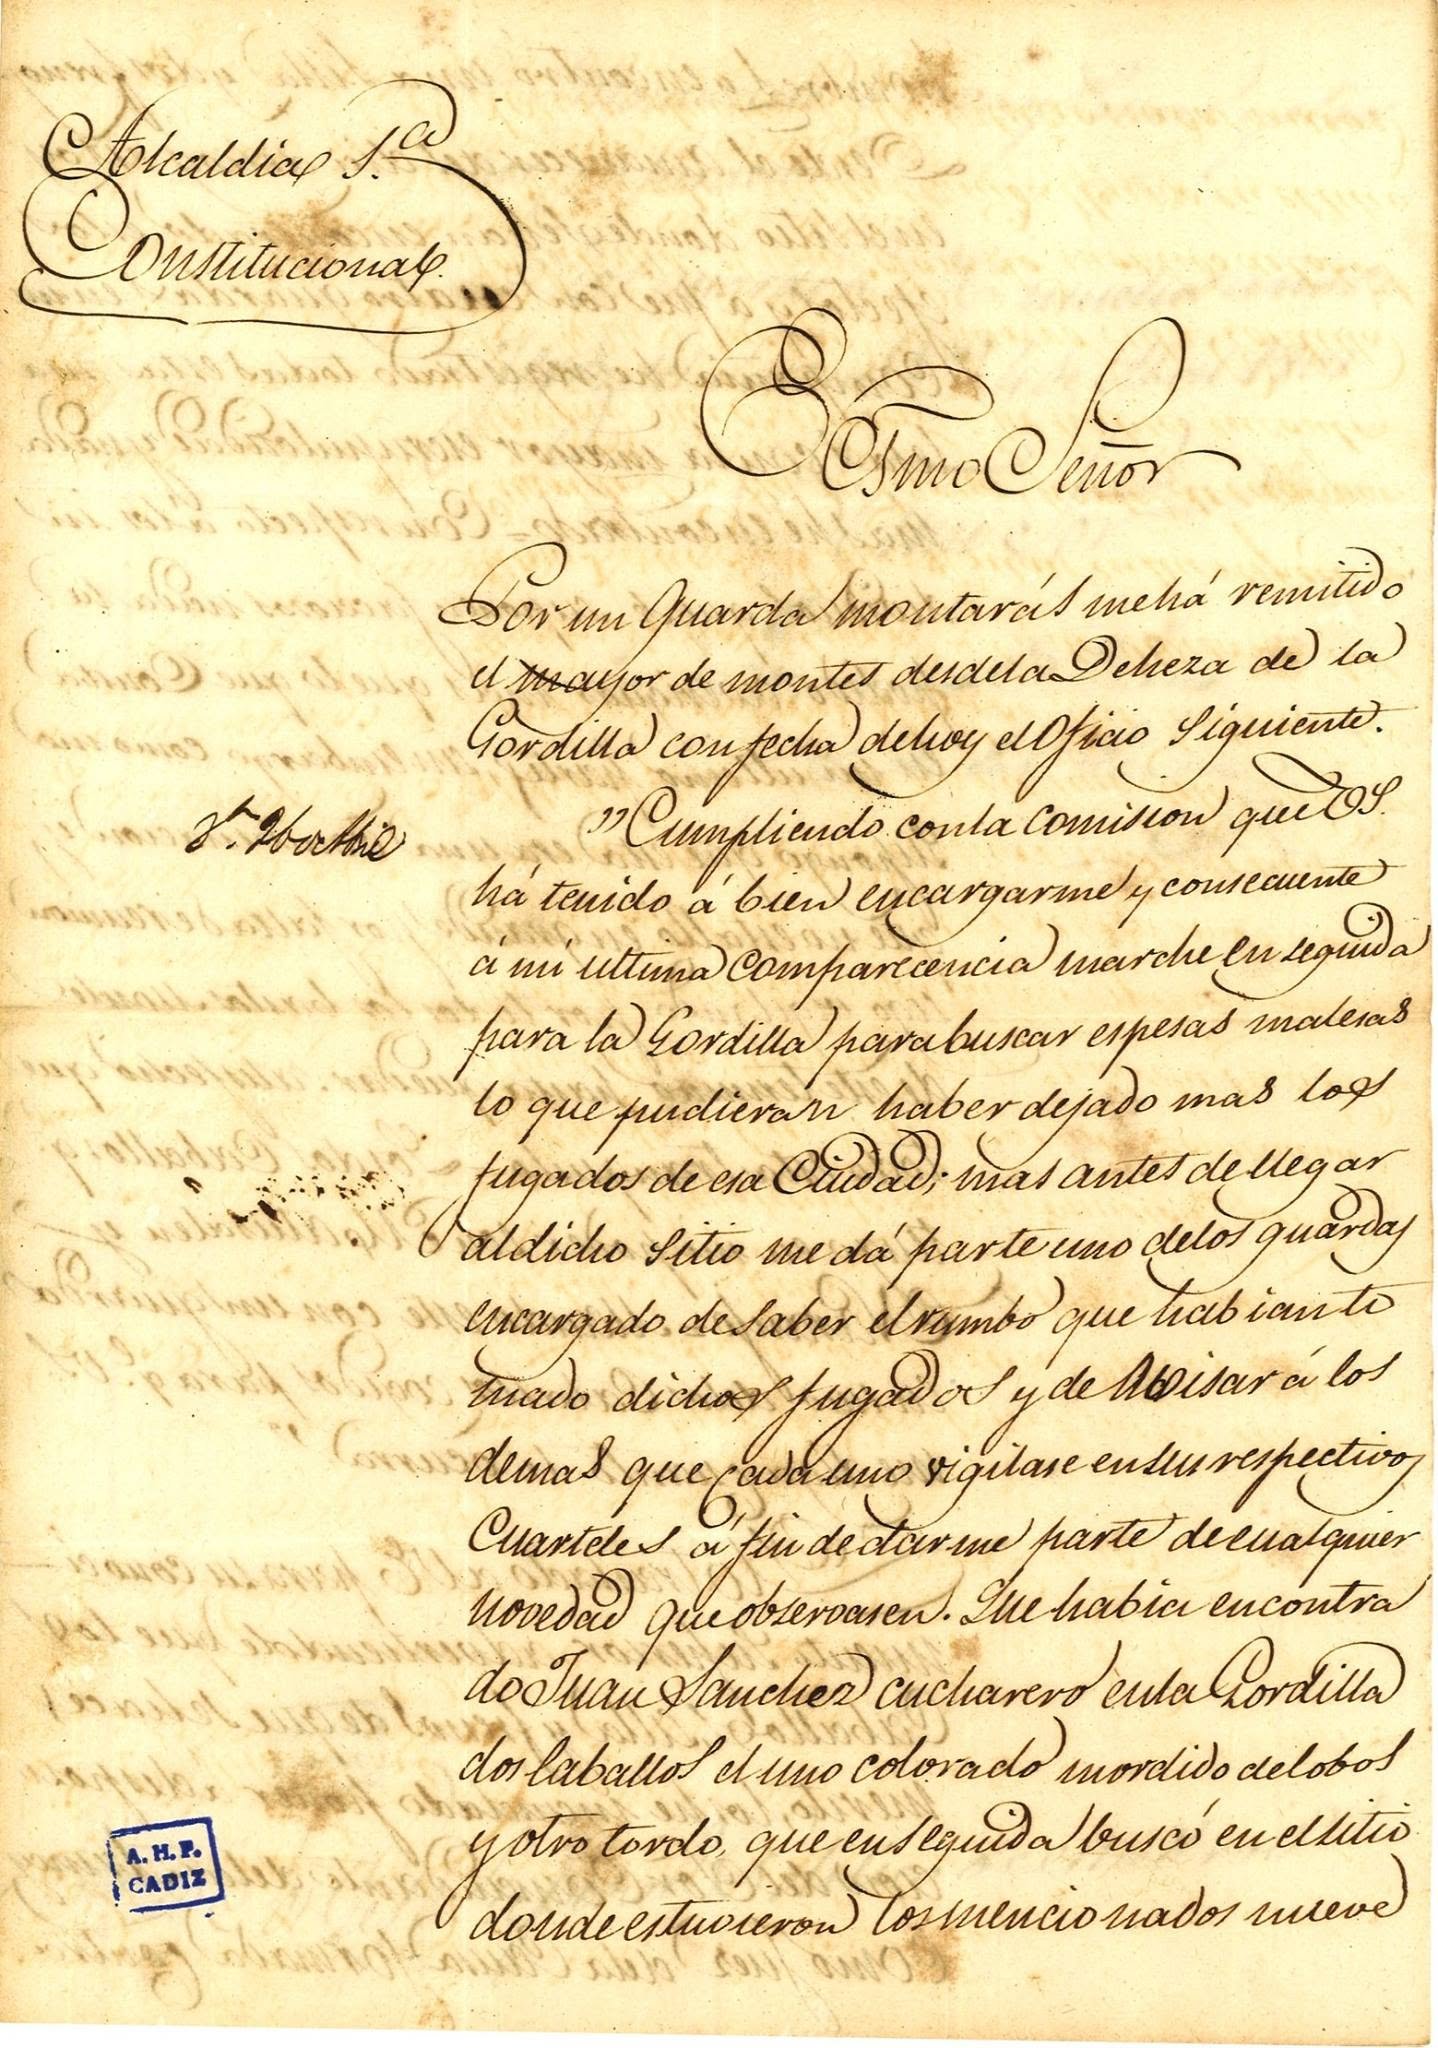 Alcaldia 1.a
Constitucional.
Exmo Señor
Por un Guarda montarás me há remitido
el mayor de montes desde la Deheza de la
Gordilla con fecha de hoy el Oficio siguiente.
"Cumpliendo con la comision que VS.
há tenido á bien encargarme y consecuente
á mi ultima comparecencia marche en seguida
para la Gordilla para buscar espesas malesas
lo que pudieran haber dejado mas los
fugados de esa Ciudad; mas antes de llegar
al dicho sitio me dá parte uno de los guardas
encargado de saber el rumbo que habian to
mado dichos fugados y de Avisar á los
demas que cada uno vigilase en sus respectivos
Cuarteles á fin de darme parte de cualquier
novedad que observasen. Que habia encontra
do Juan Sanchez cucharero en la Gordilla
dos Caballos el uno colorado mordido de lobos
y otro tordo, que en seguida buscó en el sitio
donde estuvieron los mencionados nueve
A. H. P.
CADIZ